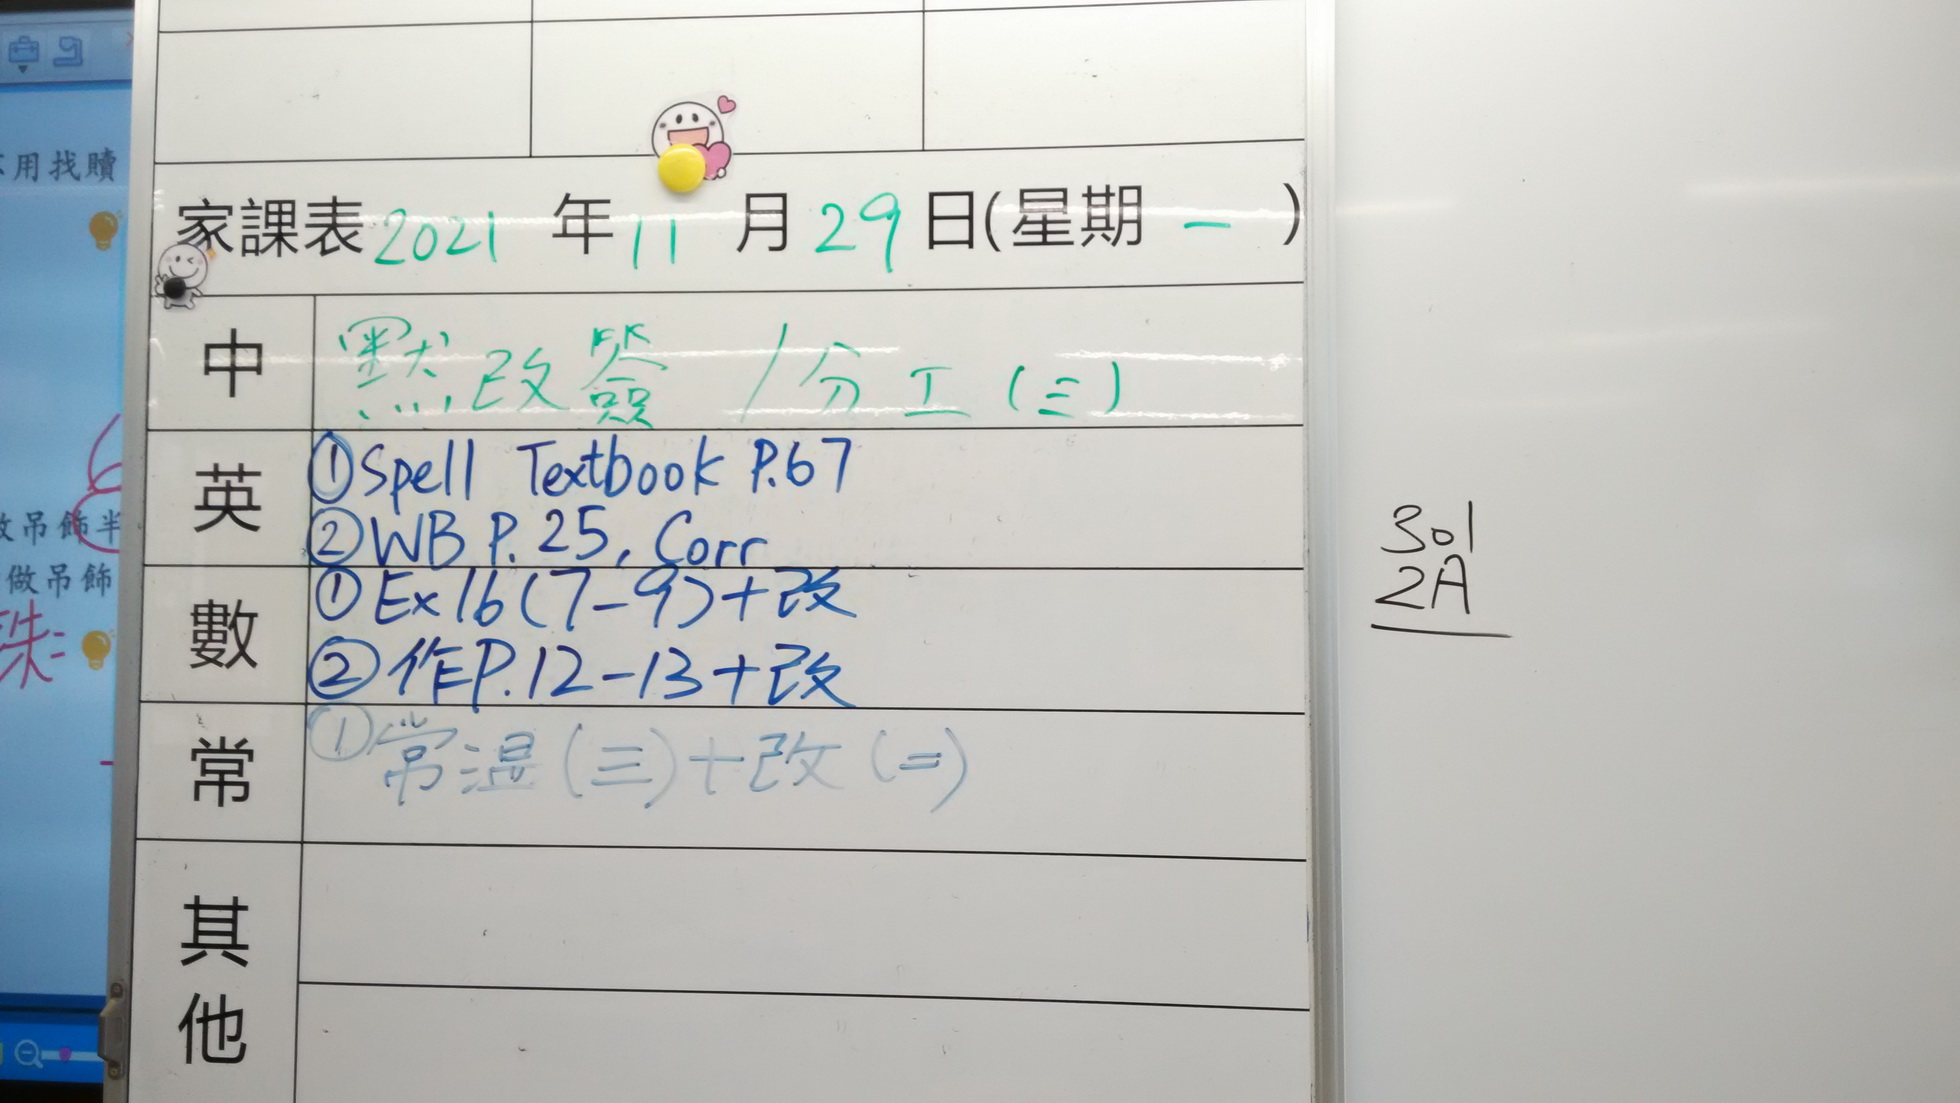 用找贖
吊飾半
做吊飾
珠=
家課表 2021 年 11 月 29 日(星期 一 )
中
默改簽 / 分工(三)
英
①Spell Textbook P.67
②WB P.25, Corr
數
①Ex16(7-9)+改
②作P.12-13+改
常
①常濕(三)+改(二)
其他
301
2A